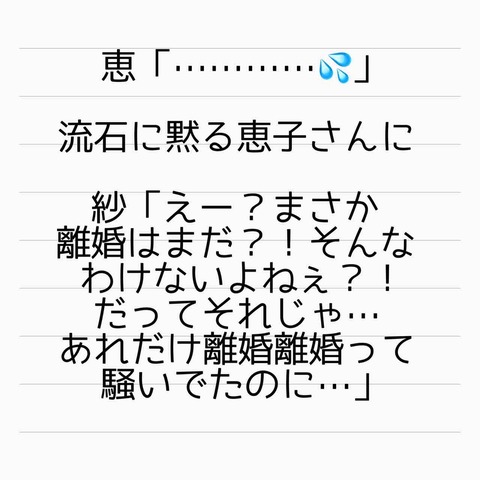 恵「…………💦」
流石に黙る恵子さんに
紗「えー？まさか
離婚はまだ？！そんな
わけないよねぇ？！
だってそれじゃ…
あれだけ離婚離婚って
騒いでたのに…」